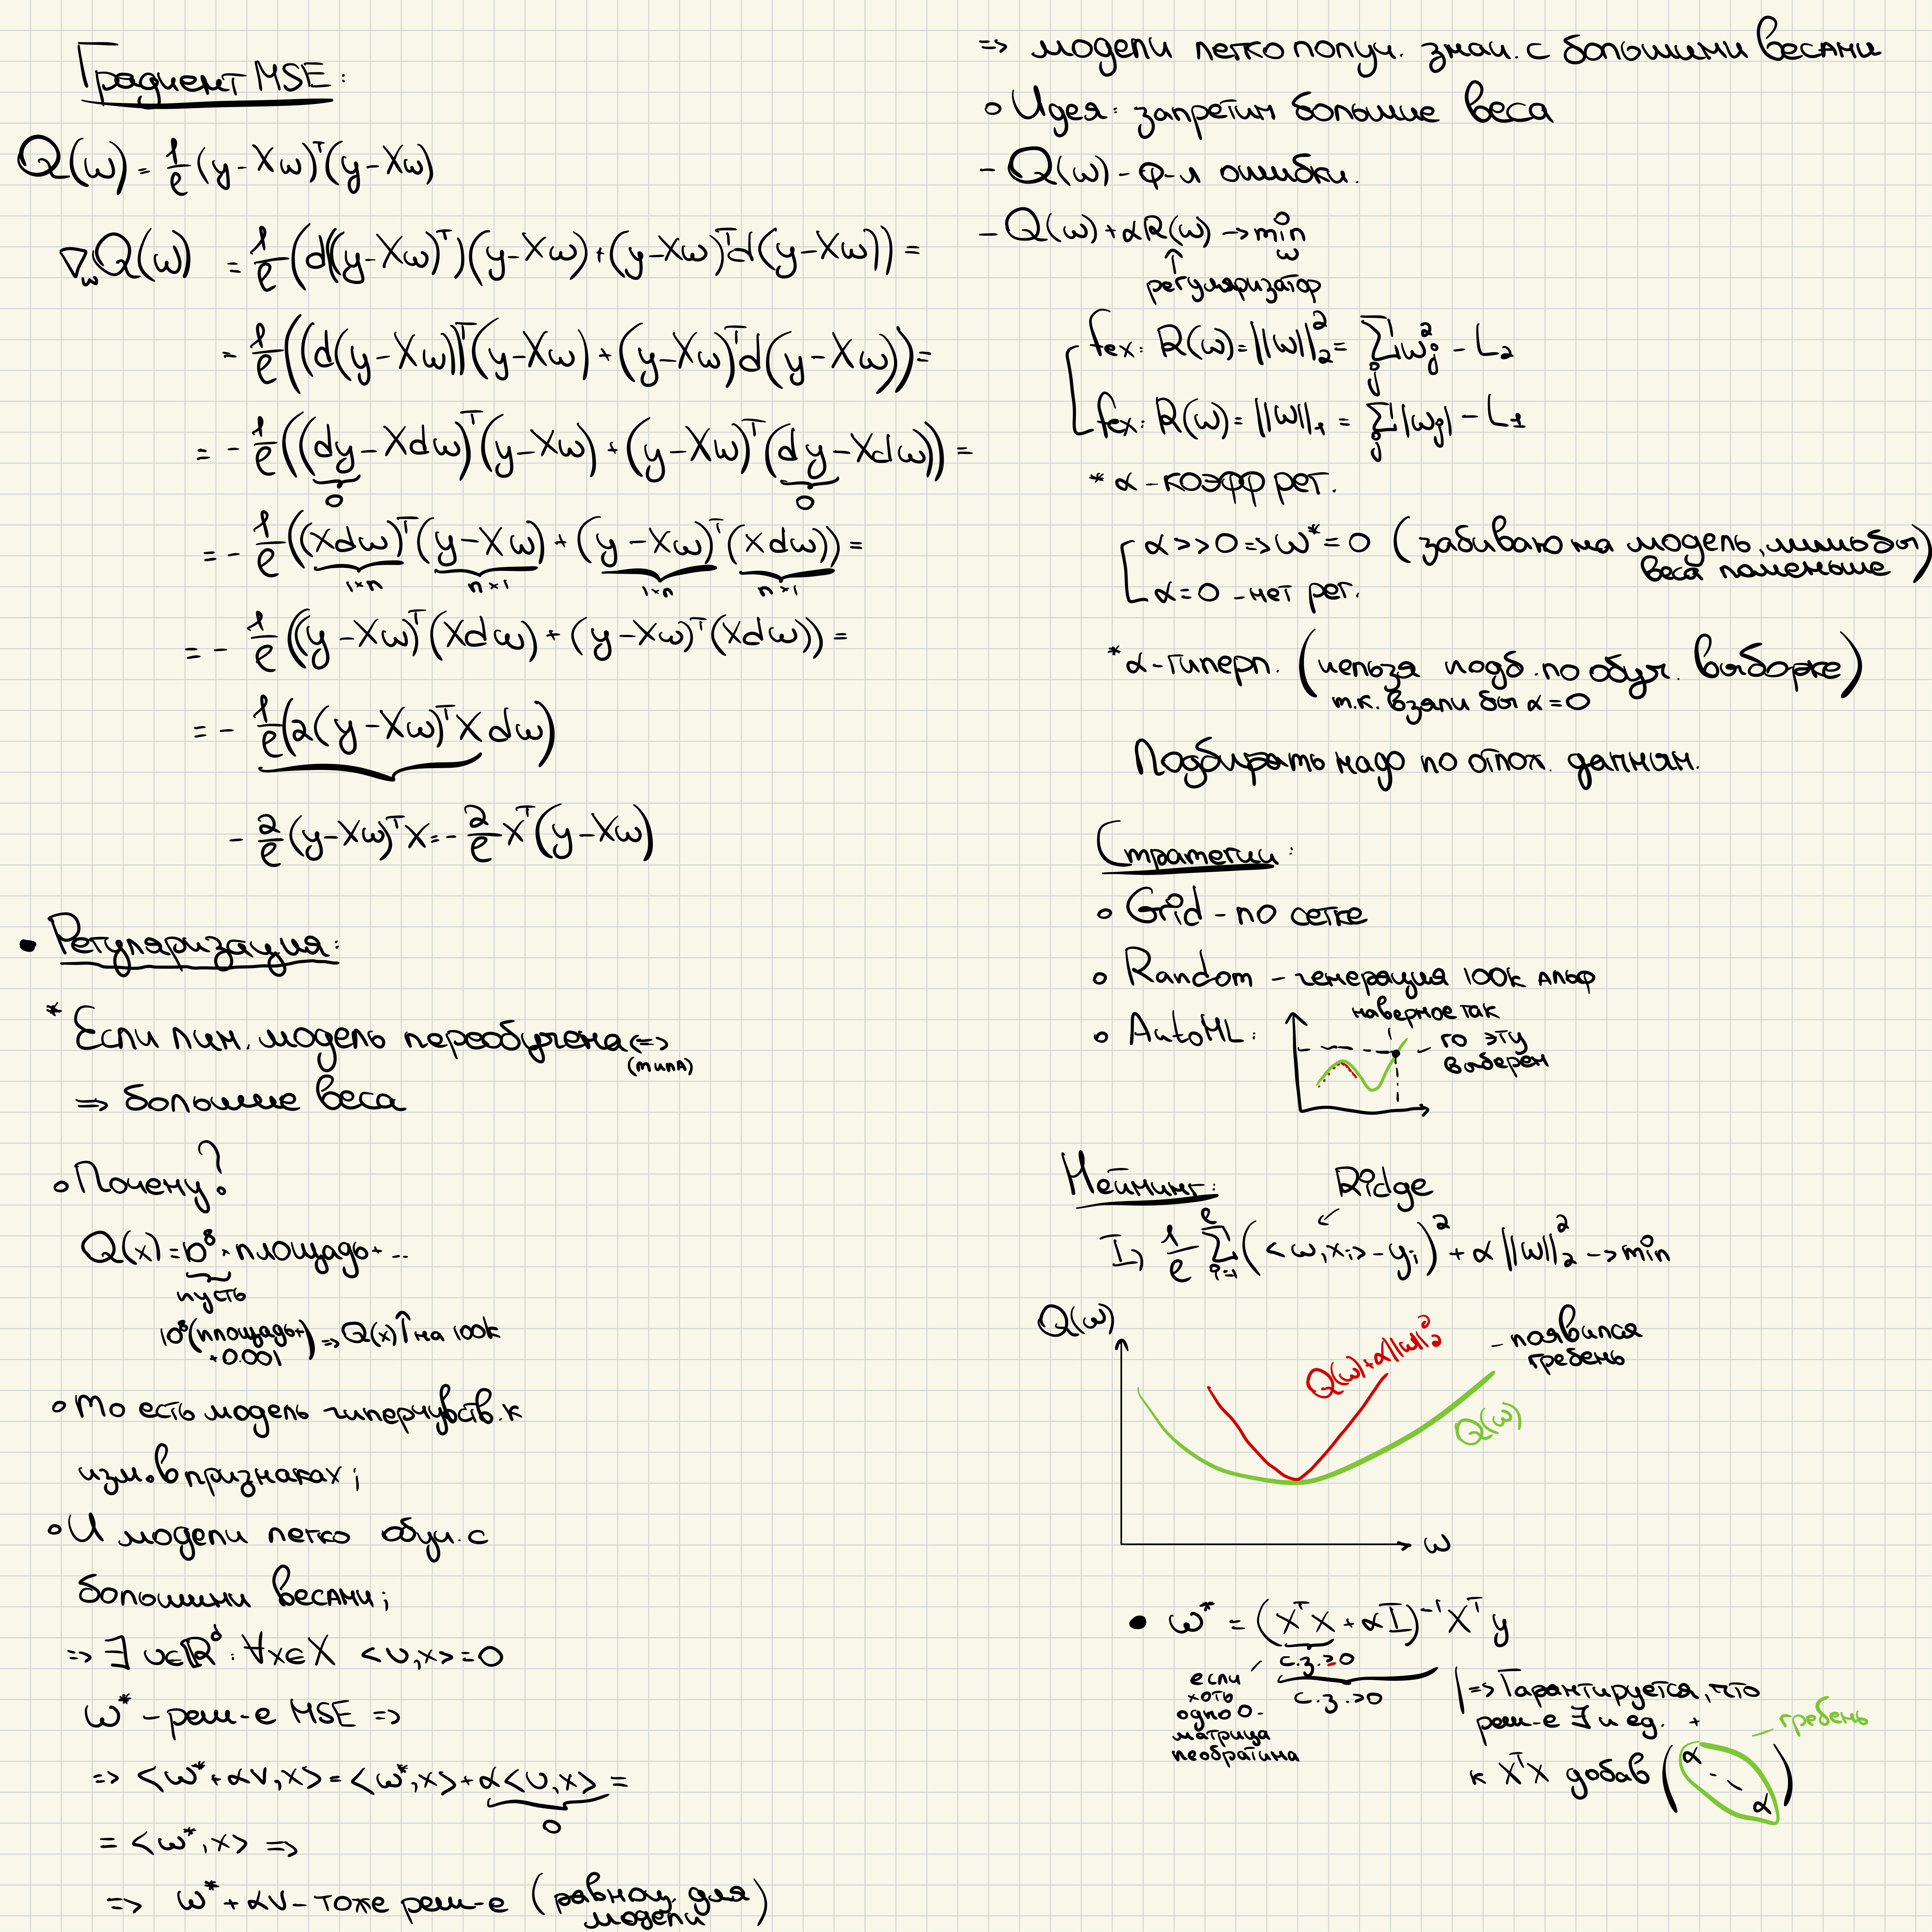 Градиент MSE:
Q(ω) = 1/ℓ (y - Xω)ᵀ(y - Xω)
∇_ω Q(ω) = 1/ℓ (d((y-Xω)ᵀ)(y-Xω) + (y-Xω)ᵀd(y-Xω)) =
= 1/ℓ ((d(y-Xω))ᵀ(y-Xω) + (y-Xω)ᵀd(y-Xω)) =
= - 1/ℓ ((dy - Xdω)ᵀ(y-Xω) + (y-Xω)ᵀ(dy - Xdω)) =
0 0
= - 1/ℓ ((Xdω)ᵀ(y-Xω) + (y-Xω)ᵀ(Xdω)) =
1×n n×1 1×n n×1
= - 1/ℓ ((y-Xω)ᵀ(Xdω) + (y-Xω)ᵀ(Xdω)) =
= - 1/ℓ (2(y-Xω)ᵀX dω)
- 2/ℓ (y-Xω)ᵀX = - 2/ℓ Xᵀ(y-Xω)
• Регуляризация:
* Если лин. модель переобучена <=>
(типа)
=> большие веса
∘ Почему?
Q(x) = 10⁸ · площадь + ..
пусть
10⁸(площадь+
+0.001) => Q(x)↑ на 100к
∘ То есть модель гиперчувств. к
изм. в признаках;
∘ И модели легко обуч. с
большими весами;
=> ∃ υ∈ℝᵈ: ∀x∈X <υ,x>=0
ω* - реш-е MSE =>
=> <ω*+αυ,x> = <ω*,x> + α<υ,x> =
0
= <ω*,x> =>
=> ω*+αυ - тоже реш-е (равноц. для
модели)
=> модели легко получ. знач. с большими весами
∘ Идея: запретим большие веса
- Q(ω) - ф-л ошибки.
- Q(ω) + αR(ω) → min
ω
↑
регуляризатор
fex: R(ω) = ||ω||₂² = ∑_j ω_j² - L₂
fex: R(ω) = ||ω||₁ = ∑_j |ω_j| - L₁
* α - коэфф рег.
α>>0 => ω*=0 (забиваю на модель, лишь бы)
веса поменьше
α=0 - нет рег.
* α - гиперп. (нельзя подб. по обуч. выборке)
т.к. взяли бы α=0
Подбирать надо по отлож. данным.
Стратегии:
∘ Grid - по сетке
∘ Random - генерация 100к альф
∘ AutoML:
наверное так
- го эту
выберем
Мейнинг: Ridge
I) 1/ℓ ∑_{i=1}^ℓ (<ω,xᵢ> - yᵢ)² + α||ω||₂² → min
Q(ω)
Q(ω)+α||ω||₂²
- появился
гребень
Q(ω)
ω
• ω* = (XᵀX + αI)⁻¹Xᵀy
с.з. ≥0
с.з. >0
если
хоть
одно 0 -
матрица
необратима
=> Гарантируется, что
реш-е ∃ и ед. +
- гребень
к XᵀX добав (α ⋱ α)